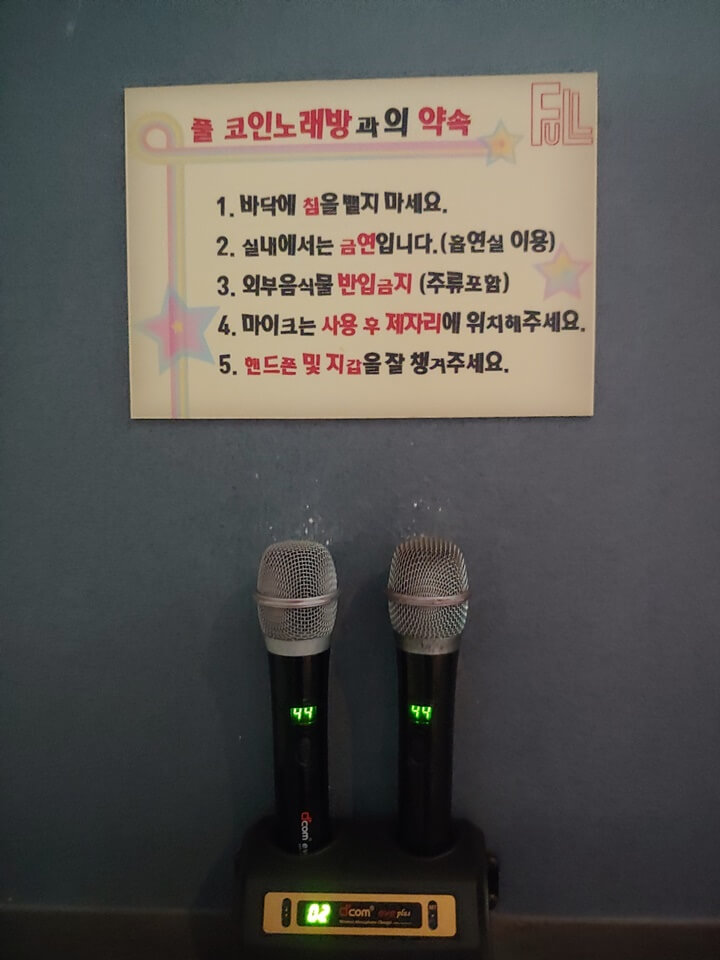 풀 코인노래방과의 약속
FULL
1. 바닥에 침을 뱉지 마세요.
2. 실내에서는 금연입니다.(흡연실 이용)
3. 외부음식물 반입금지 (주류포함)
4. 마이크는 사용 후 제자리에 위치해주세요.
5. 핸드폰 및 지갑을 잘 챙겨주세요.
44
44
com
02 com plus